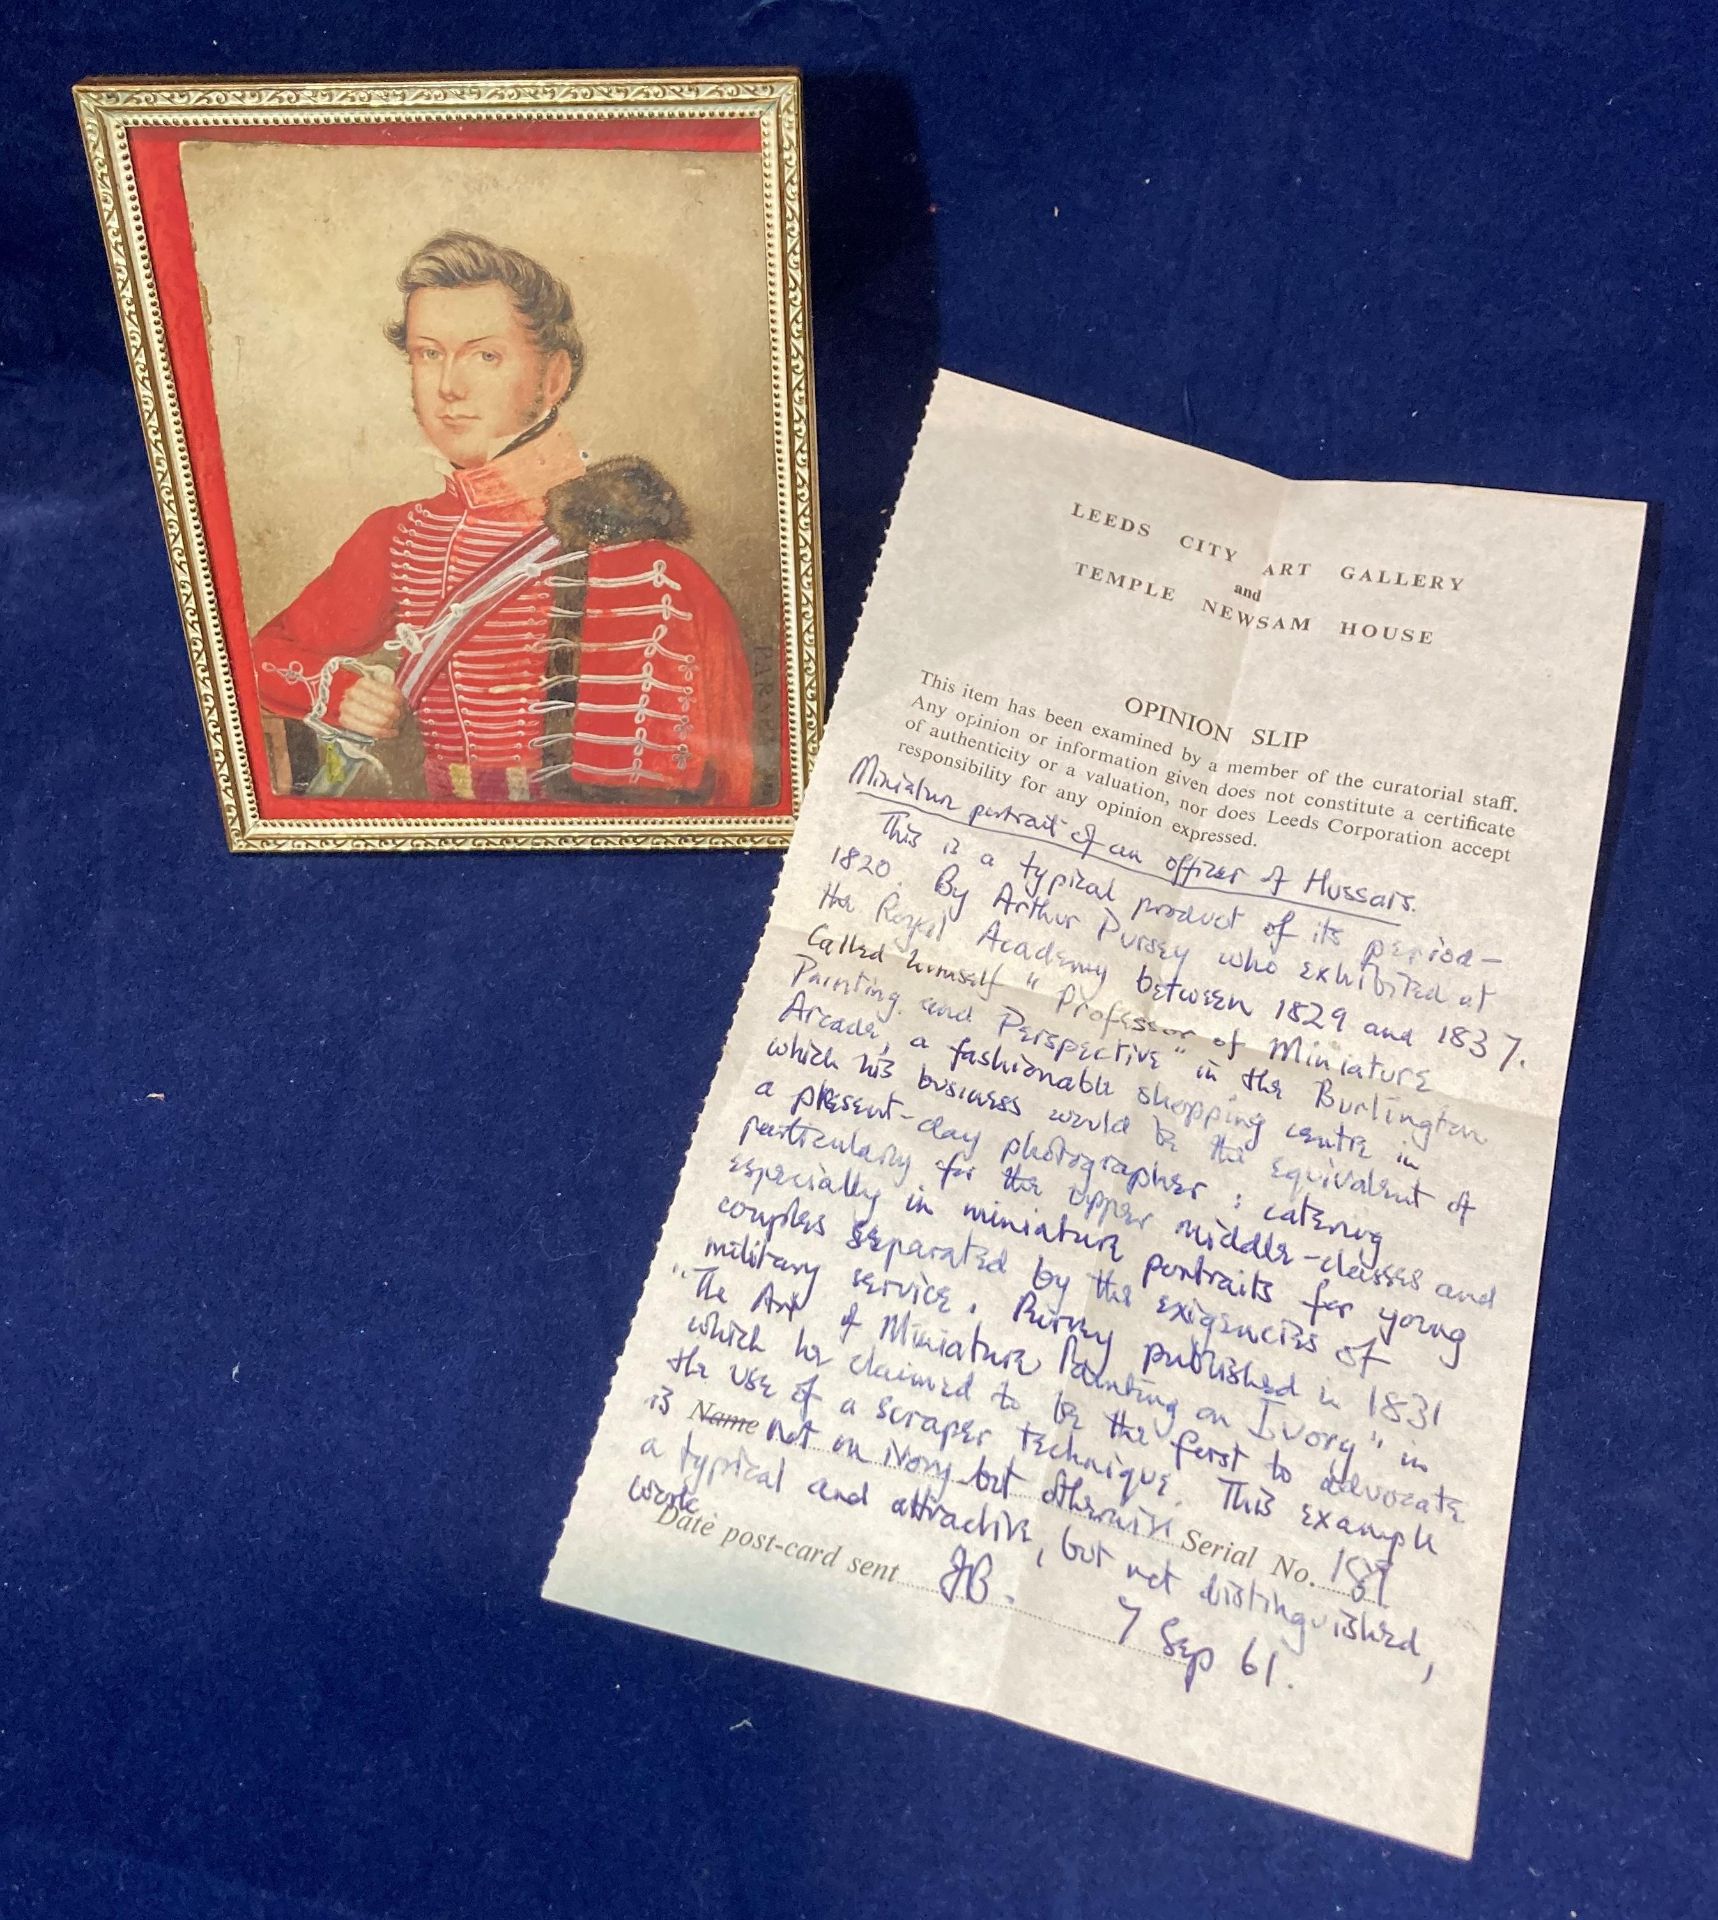 LEEDS CITY ART GALLERY
and
TEMPLE NEWSAM HOUSE
OPINION SLIP
This item has been examined by a member of the curatorial staff.
Any opinion or information given does not constitute a certificate
of authenticity or a valuation, nor does Leeds Corporation accept
responsibility for any opinion expressed.
Miniature portrait of an officer of Hussars.
This is a typical product of its period –
1820. By Arthur Pursey who exhibited at
the Royal Academy between 1829 and 1837.
Called himself "Professor of Miniature
Painting and Perspective" in the Burlington
Arcade, a fashionable shopping centre in
which his business would be the equivalent of
a present-day photographer : catering
particularly for the upper middle-classes and
especially in miniature portraits for young
couples separated by the exigencies of
military service. Pursey published in 1831
"The Art of Miniature Painting on Ivory" in
which he claimed to be the first to advocate
the use of a scraper technique. This example
is Name not on ivory but otherwise Serial No. 187
a typical and attractive, but not distinguished,
work.
Date post-card sent JB. 7 Sep 61.